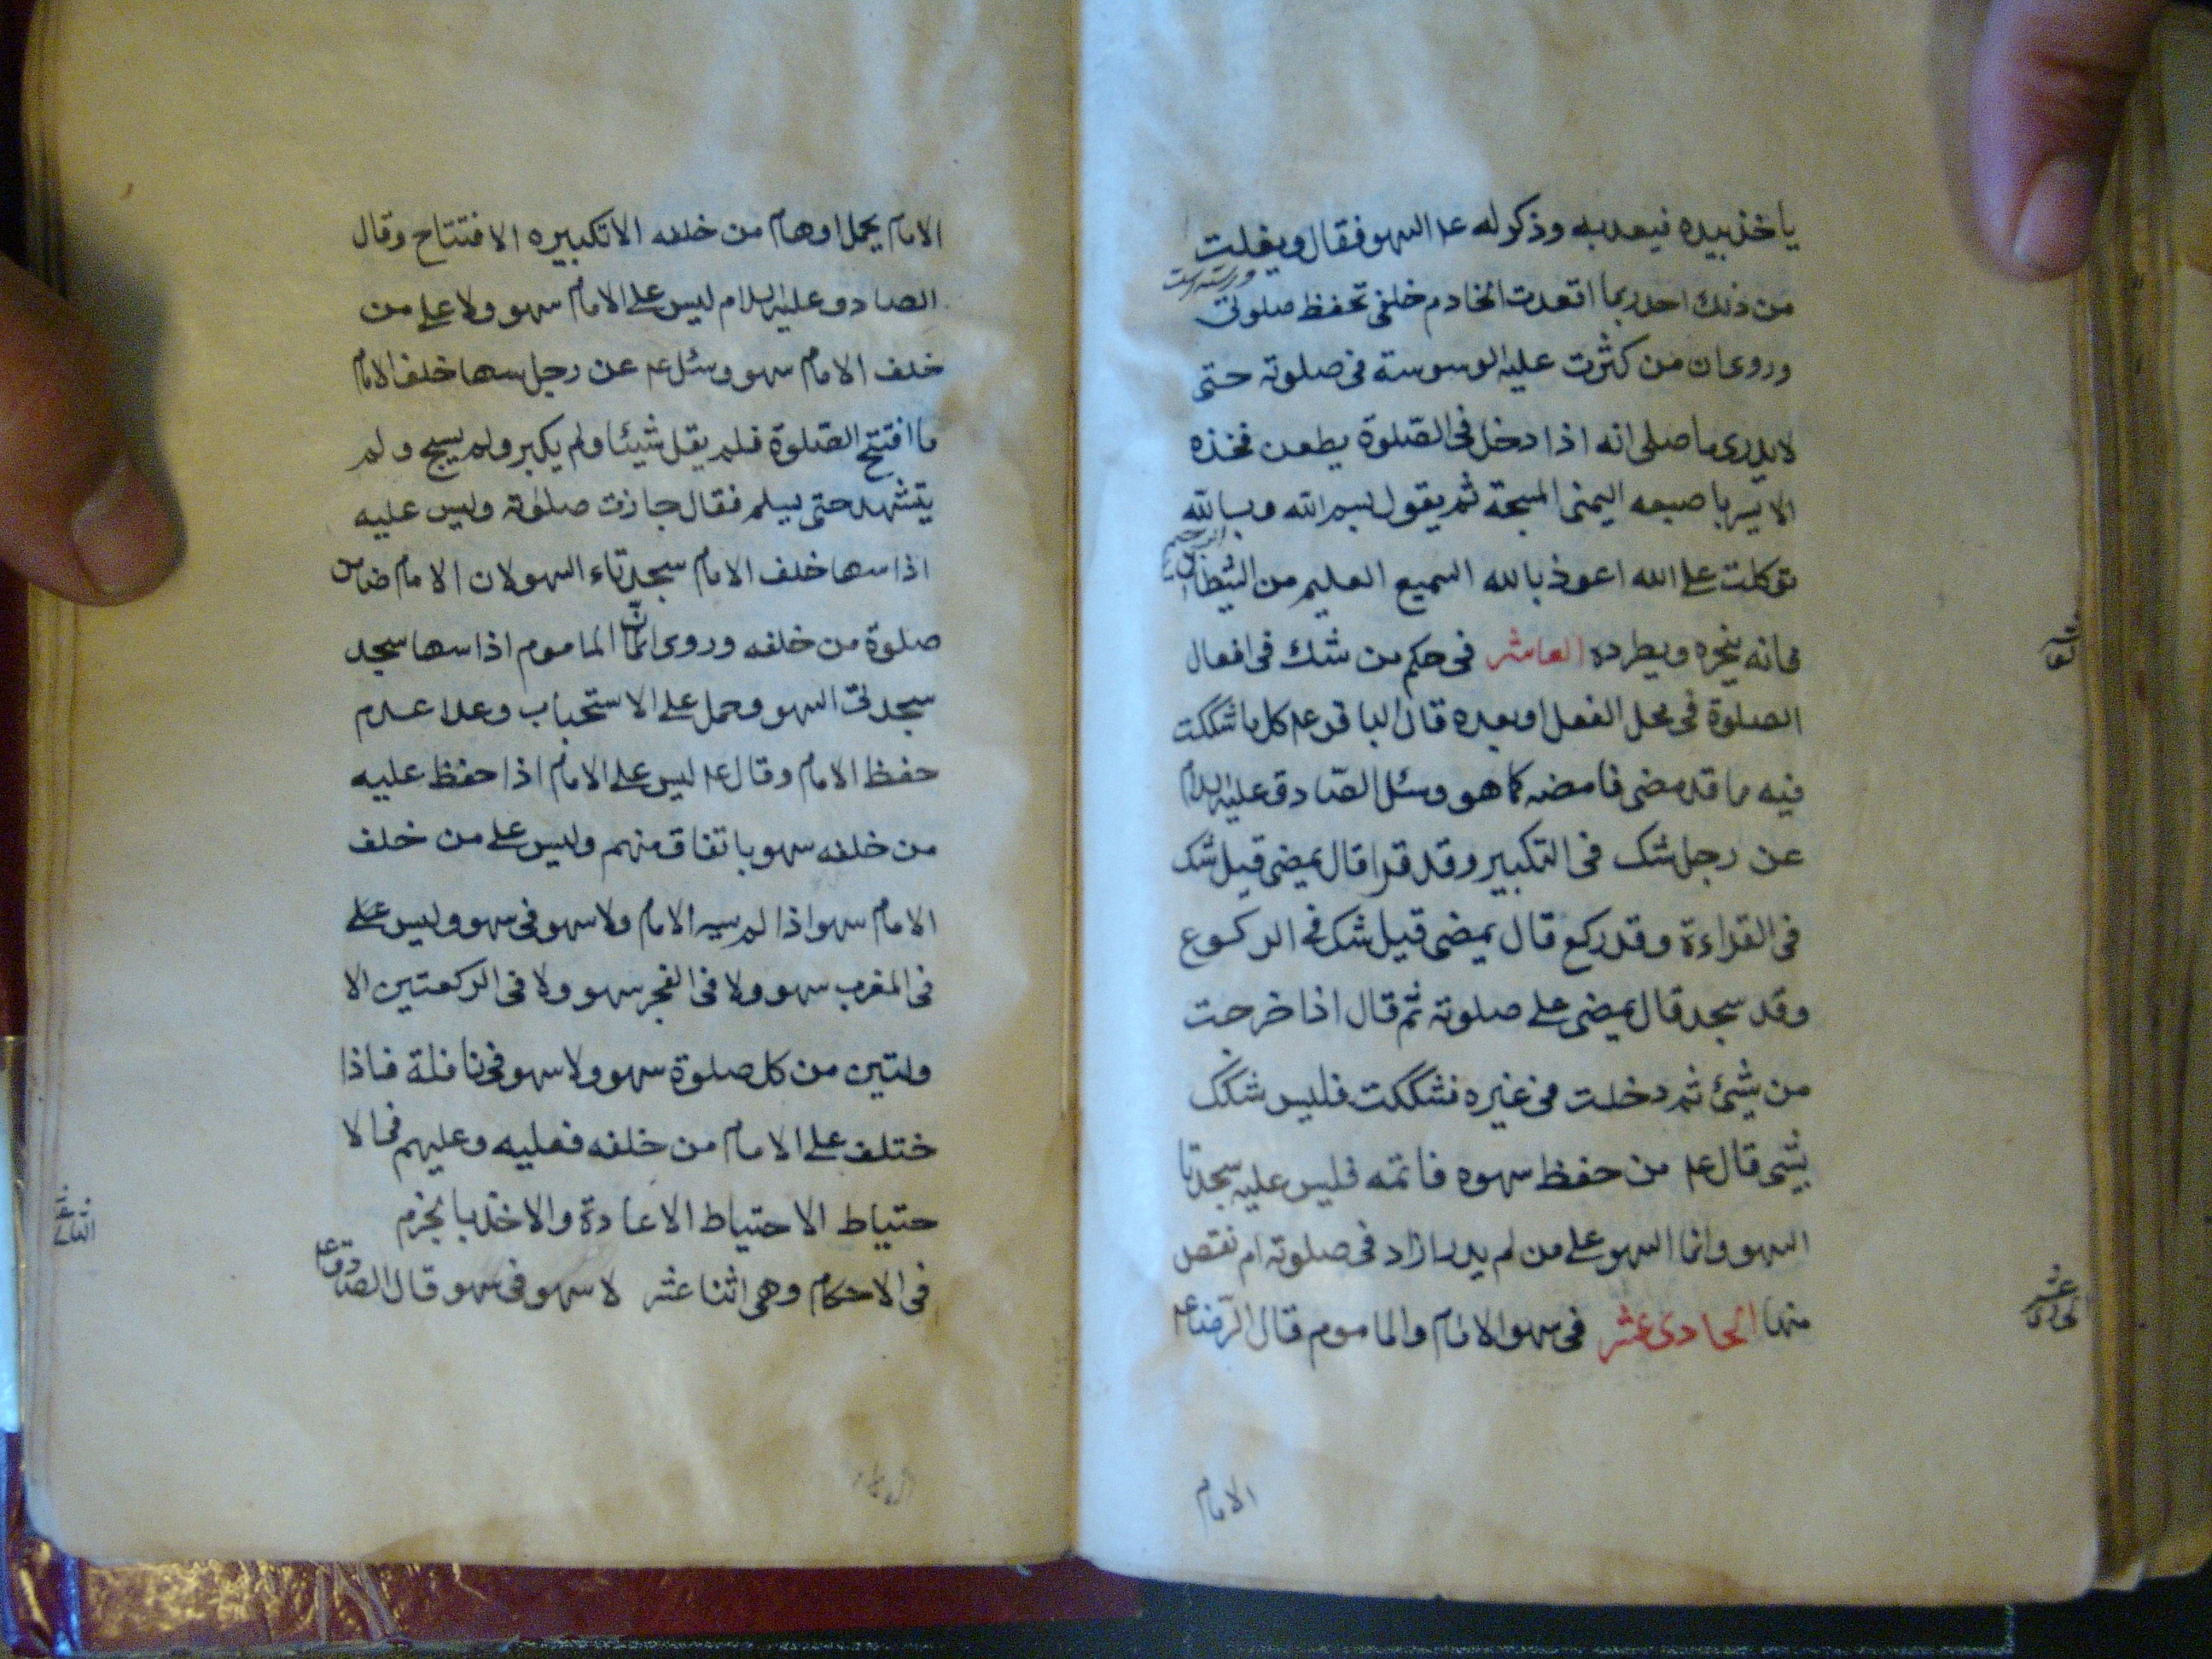 ياخذ بيده فيعد به وذكر له عم السهو فقال ويفلت
من ذلك احد ربما اقعدت الخادم خلفى تحفظ صلوتى
وروى ان من كثرت عليه الوسوسة فى صلوته حتى
لا يدرى ما صلى انه اذا دخل فى الصّلوة يطعن فخذه
الايسر باصبعه اليمنى المسبحة ثم يقول بسم الله وبالله
توكلت على الله اعوذ بالله السميع العليم من الشيطان الرجيم
فانه ينخره ويطرده العاشر فى حكم من شك فى افعال
الصلوة فى محل الفعل او بعده قال الباقر عم كل ما شككت
فيه ما قد مضى فامضه كما هو وسئل الصّادق عليه السلام
عن رجل شك فى التكبير وقد قرا قال يمضى قيل شك
فى القراءة وقد ركع قال يمضى قيل شك فى الركوع
وقد سجد قال يمضى على صلوته ثم قال اذا خرجت
من شئ ثم دخلت فى غيره فشككت فليس شكك
بشى قال عم من حفظ سهوه فاتمه فليس عليه سجدتا
السهو وانما السهو على من لم يدر ازاد فى صلوته ام نقص
منها الحادى عشر فى سهو الامام والماموم قال الرّضا عم
الامام
العاشر
الحادى عشر
الامام يحمل اوهام من خلفه الا تكبيره الافتتاح وقال
الصادق عليه السلام ليس على الامام سهو ولا على من
خلف الامام سهو وسئل عم عن رجل سها خلف الامام
ما افتتح الصّلوة فلم يقل شيئا ولم يكبر ولم يسبح ولم
يتشهد حتى يسلم فقال جازت صلوته وليس عليه
اذا سها خلف الامام سجدتاء السهو لان الامام ضامن
صلوة من خلفه وروى انّ الماموم اذا سها سجد
سجدتى السهو وحمل على الاستحباب وعلا عدم
حفظ الامام وقال عم ليس على الامام اذا حفظ عليه
من خلفه سهو باتفاق منهم وليس على من خلف
الامام سهو اذا لم يسه الامام ولا سهو فى سهو وليس على
فى المغرب سهو ولا فى الفجر سهو ولا فى الركعتين الا
ولتين من كل صلوة سهو ولا سهو فى نافلة فاذا
ختلف على الامام من خلفه فعليه وعليهم فى الا
حتياط الاحتياط الاعادة والاخذ بالجزم
فى الاحكام وهى اثنا عشر لا سهو فى سهو قال الصّادق عم